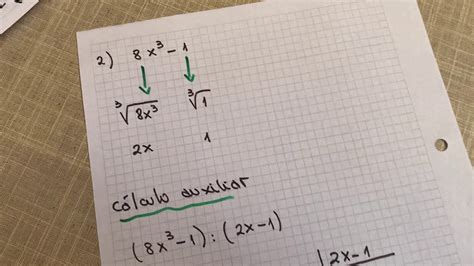 2) 8x³ - 1
∛8x³ ∛1
2x 1
cálculo auxiliar
(8x³-1) : (2x-1)
2x-1